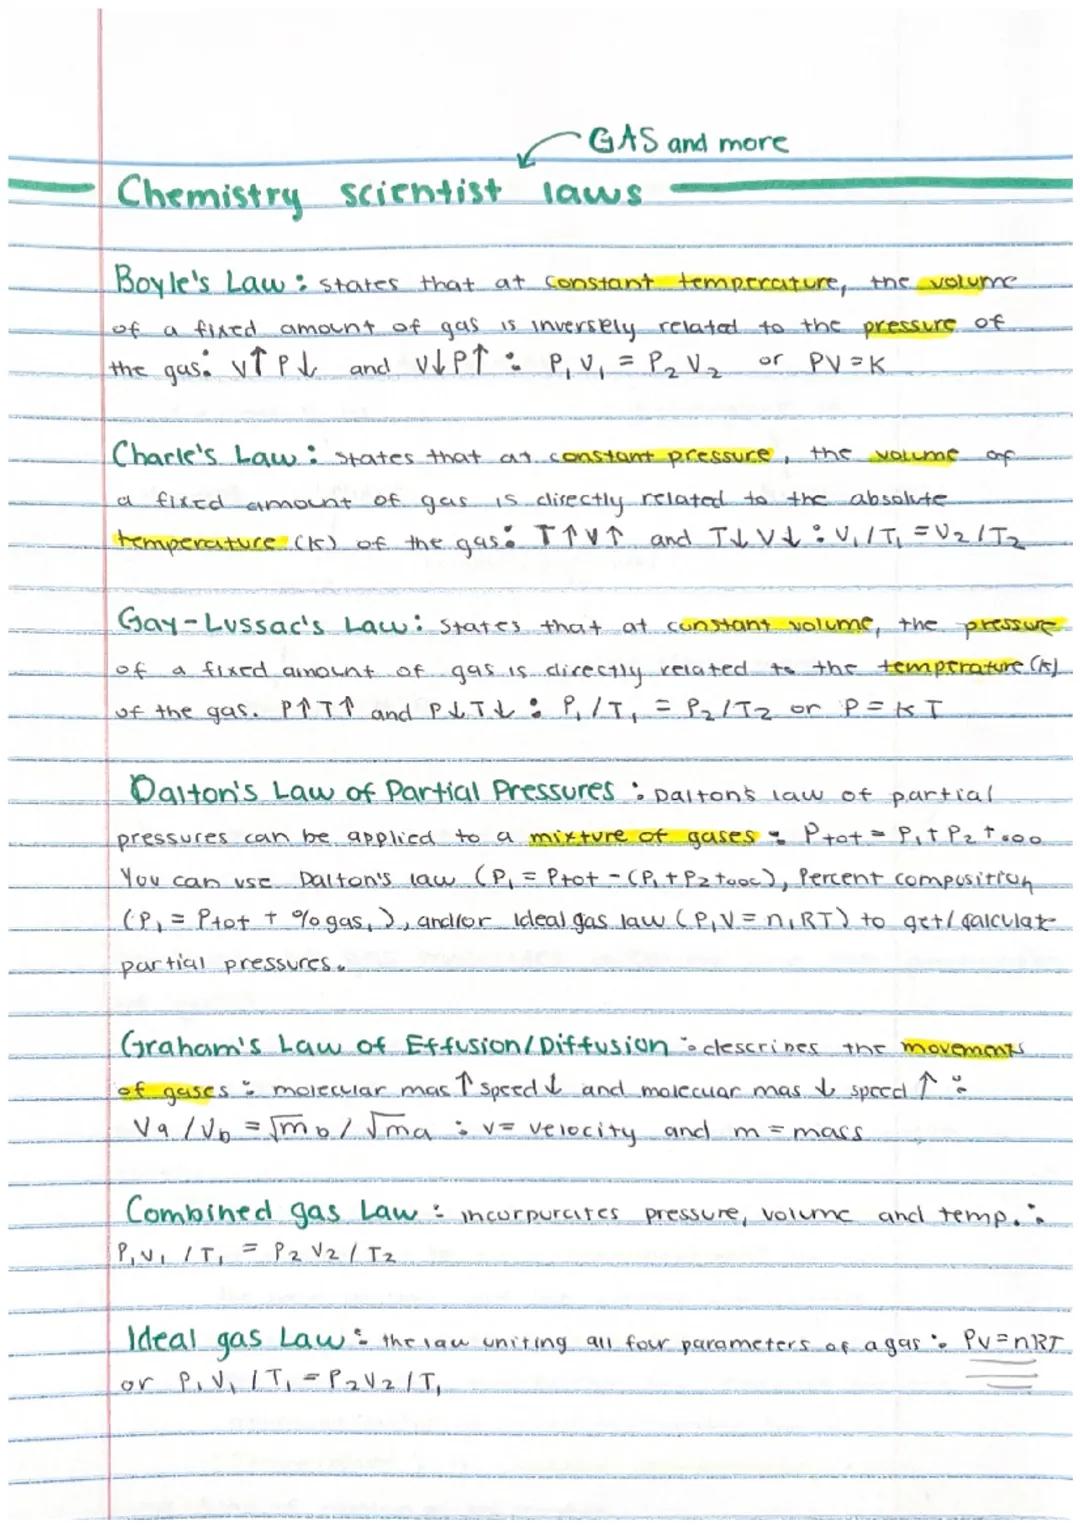 GAS and more
Chemistry scientist laws
Boyle's Law: states that at constant temperature, the volume
of a fixed amount of gas is inversely related to the pressure of
the gas: V↑ P↓ and V↓P↑ : P₁V₁ = P₂V₂ or PV=K
Charle's Law: states that at constant pressure, the volume of
a fixed amount of gas is directly related to the absolute
temperature (K) of the gas: T↑V↑ and T↓V↓ : V₁/T₁ = V₂/T₂
Gay-Lussac's Law: states that at constant volume, the pressure
of a fixed amount of gas is directly related to the temperature (K)
of the gas. P↑T↑ and P↓T↓ : P₁/T₁ = P₂/T₂ or P = KT
Dalton's Law of Partial Pressures : Dalton's law of partial
pressures can be applied to a mixture of gases : Ptot = P₁ + P₂ + ...
You can use Dalton's law (P₁ = Ptot - (P₁ + P₂ + ...), Percent composition
(P₁ = Ptot + % gas₁), and/or Ideal gas law (P₁V = n₁RT) to get/calculate
partial pressures.
Graham's Law of Effusion/Diffusion : descrines the movements
of gases : molecular mas ↑ speed ↓ and molecuar mas ↓ speed ↑ :
Va/Vb = √mb / √ma : v = velocity and m = mass
Combined gas Law : incorpurates pressure, volume and temp. :
P₁V₁/T₁ = P₂V₂/T₂
Ideal gas Law : the law uniting all four parameters of a gas : PV=nRT
or P₁V₁/T₁ = P₂V₂/T₁